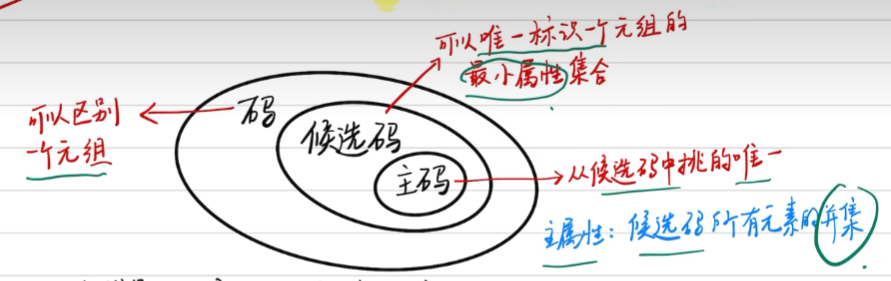 可以唯一标识一个元组的
最小属性集合
码
可以区别
一个元组
候选码
主码
从候选码中挑的唯一
主属性：候选码所有元素的并集